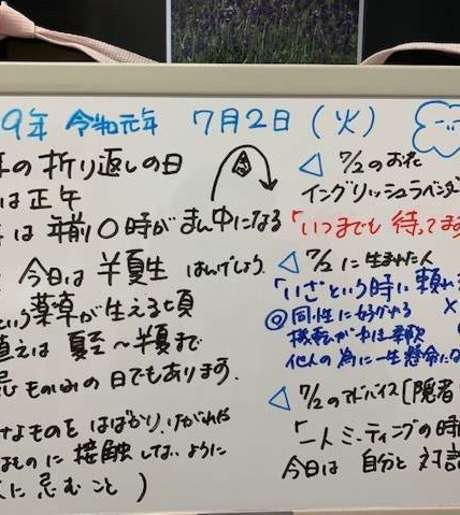 9年 令和元年 7月2日(火)
の折り返しの日
は正午
は 午前0時が まん中になる
今日は 半夏生 はんげしょう
という 薬草が生える頃
植えは 夏至〜半夏まで
ものいみの日でもあります。
なものを はばかり、けがれや
ものに 接触しないように
に忌むこと)
◁ 7/2のお花
イングリッシュラベンダ
「いつまでも 待ってます
◁ 7/2に 生まれた人
「いざという時に頼れ
◎ 同性に好かれる
機転がきき柔軟
他人の為に一生懸命に
◁ 7/2のアドバイス[隠者
「一人ミーティングの時
今日は 自分と 対話